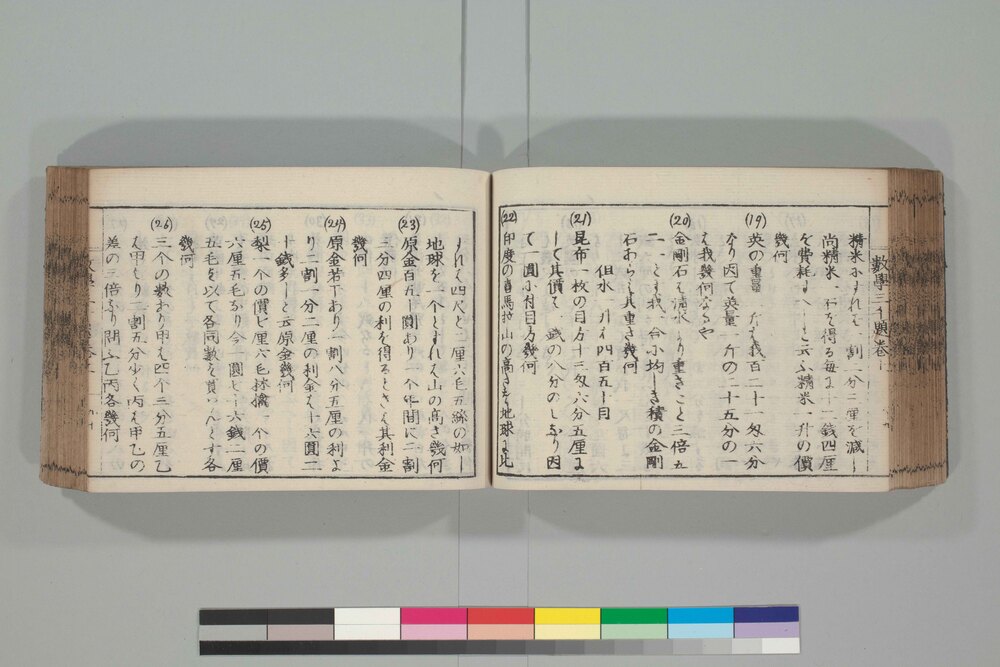 精米にすれば一割二分二厘を減し
尚精米一石を得る毎に十二銭四厘
を費耗すへしと云ふ精米一升の價
幾何
(19) 英の重量 我百二十一匁六分
なり因て英量一斤の二十五分の一
は我幾何なるや
(20) 金剛石は清水より重きこと三倍五
二一とす我一合に均しき積の金剛
石あらは其重さ幾何
但水一升は四百五十目
(21) 昆布一枚の目方十三匁六分五厘に
して其價は一銭の八分のしなり因
て一圓に付目方幾何
(22) 印度の喜馬拉山の高さは地球に比
すれは四尺と一厘六毛五絲の如し
地球を一个とすれは山の高さ幾何
(23) 原金百五十圓あり一个年間に二割
三分四厘の利を得るときは其利金
幾何
(24) 原金若干あり一割八分五厘の利よ
り二割一分二厘の利金は十六圓二
十銭多しと云原金幾何
(25) 梨一个の價七厘六毛林檎一个の價
六厘五毛なり今一圓七十六銭一厘
五毛を以て各同数を買はんとす各
幾何
(26) 三个の数あり甲は四个三分五厘乙
は甲より一割五分少く丙は甲乙の
差の三倍なり問ふ乙丙各幾何